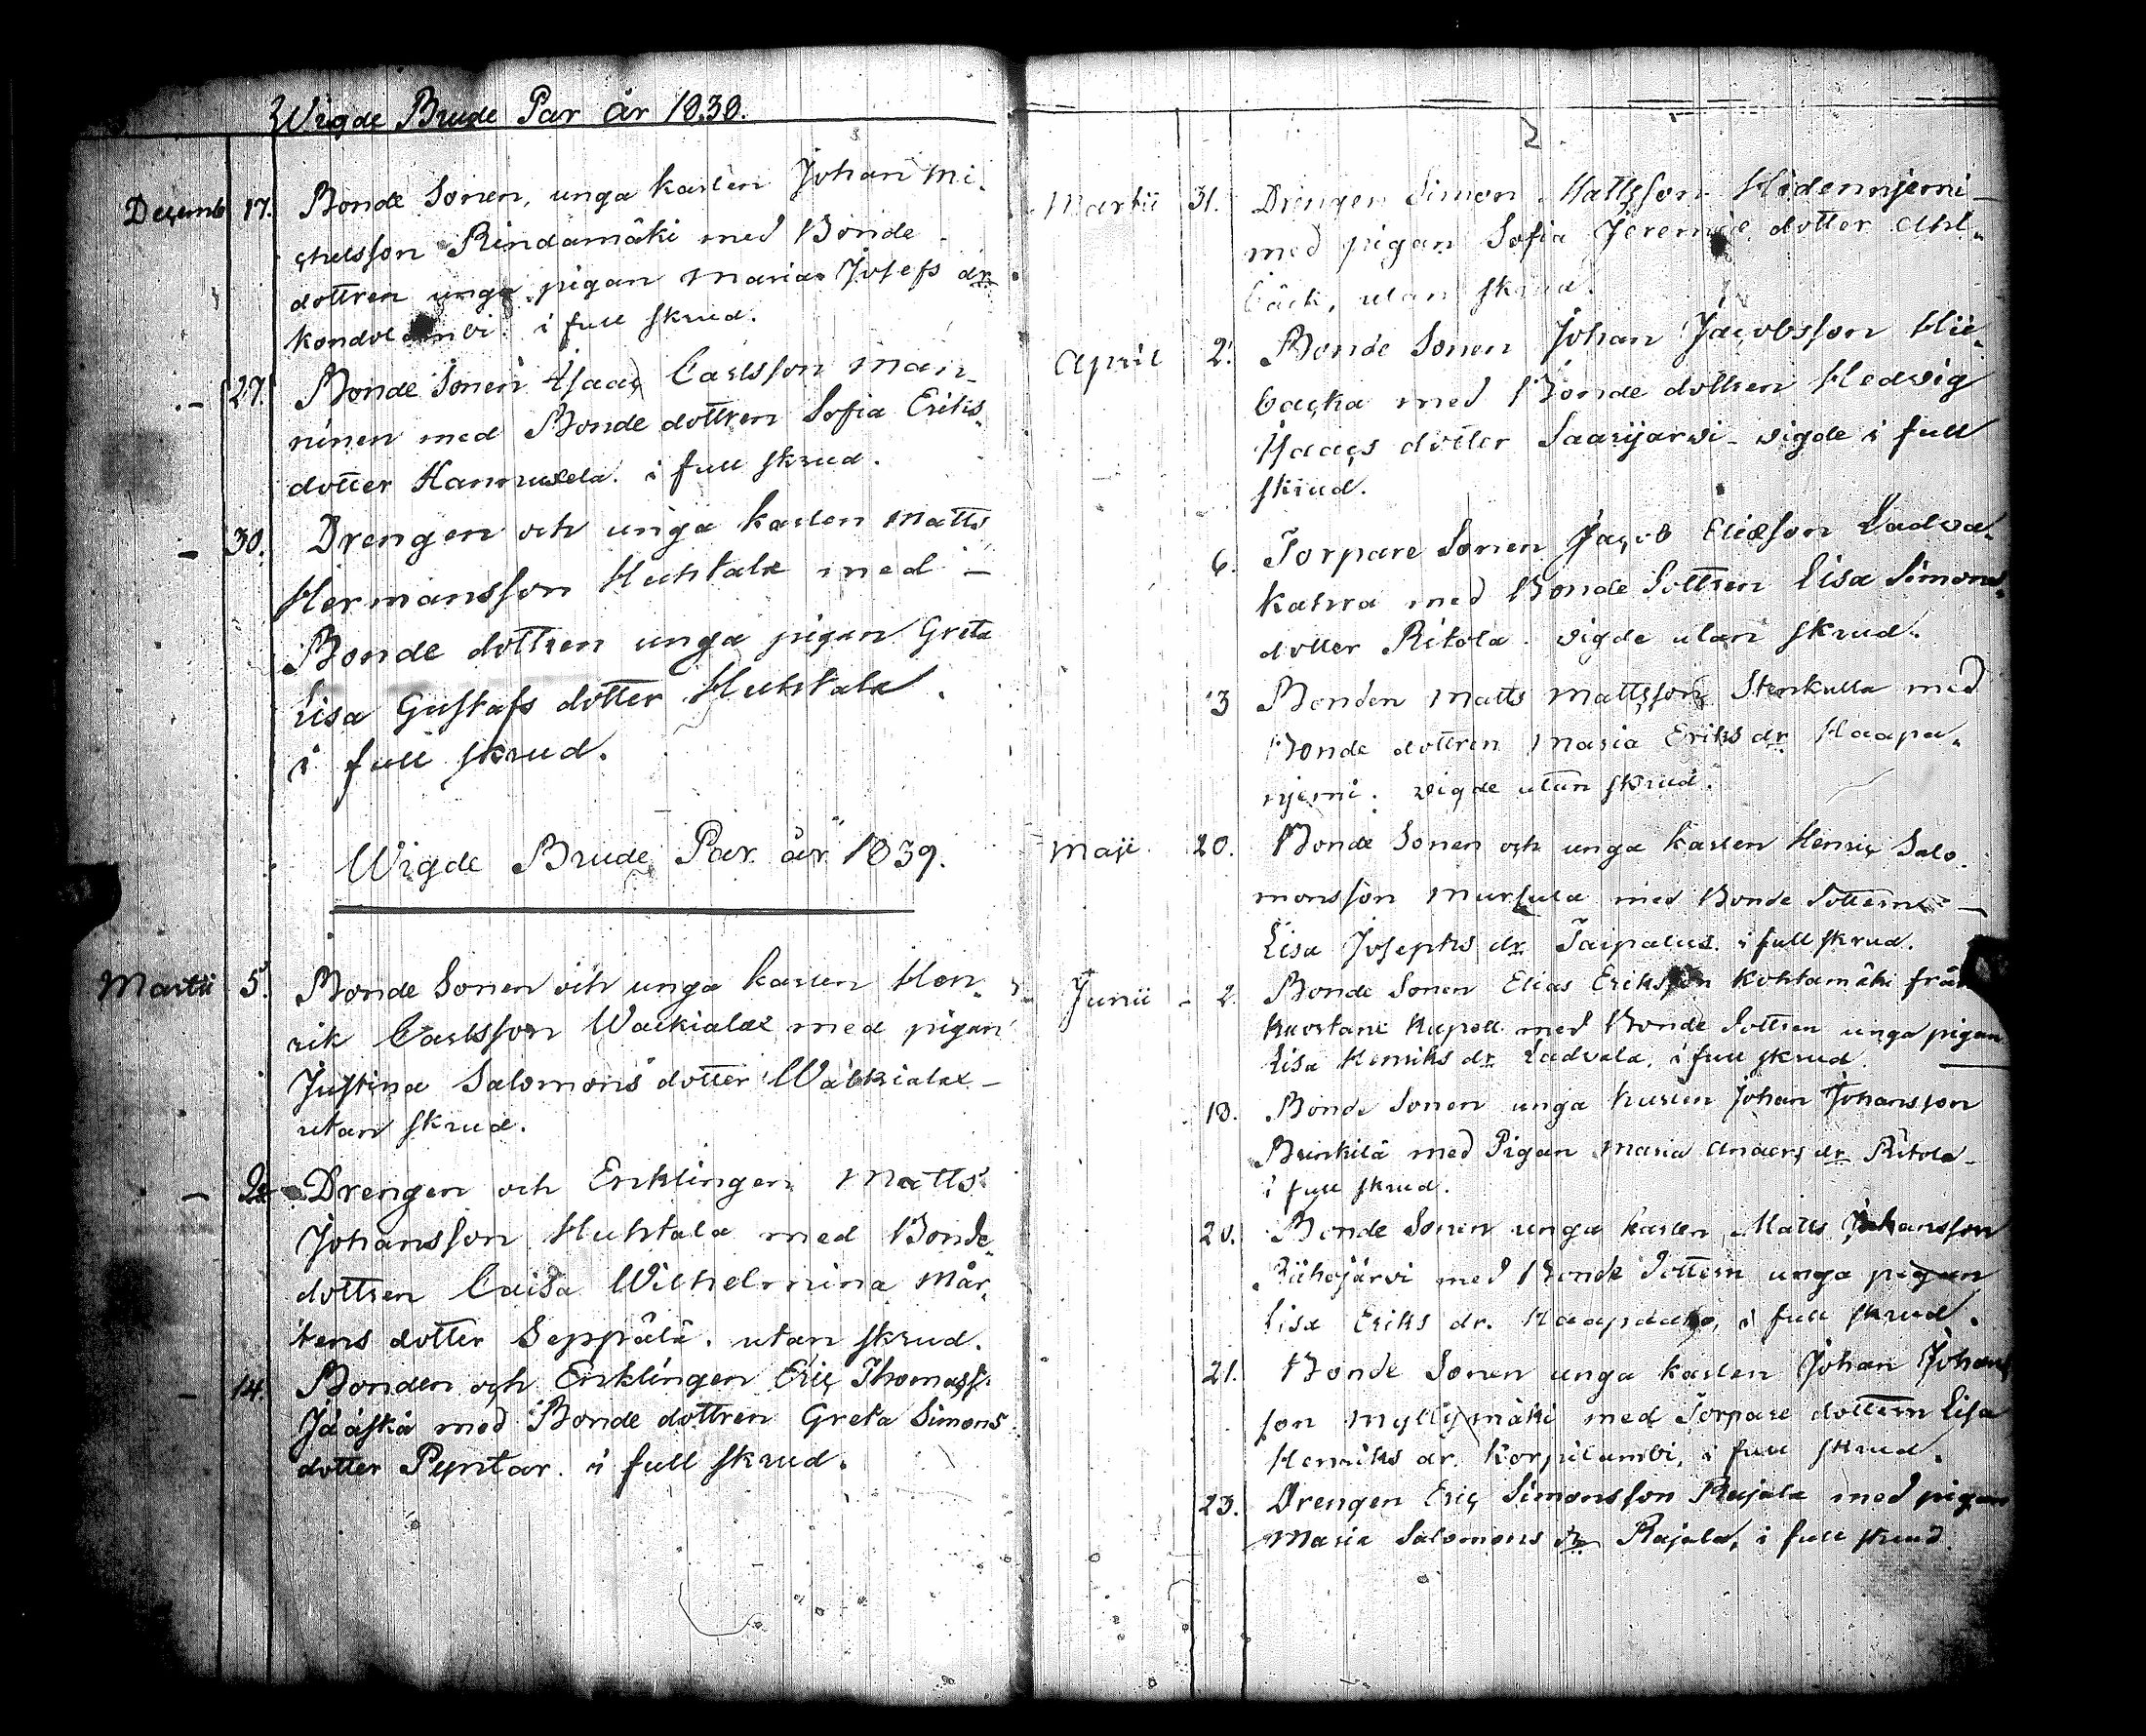 Wigde Brude Par år 1838.
Decemb 17. Bonde Sonen, unga karlen Johan Mi-
chelsson Rindamäki med Bonde
dottren unga pigan Maria Josefs dr
i full skrud.
- 27. Bonde Sonen Isaac Carlsson Män-
ninen med Bonde dottren Sofia Eriks
dotter Hannuxela. i full skrud.
- 30. Drengen och unga karlen Matts
Hermansson Huhtala med -
Bonde dottren unga pigan Greta
Lisa Gustafs dotter Huhtala.
i full skrud.
Wigde Brude Par år 1839.
Martii 5. Bonde Sonen och unga karlen Hen-
rik Carlsson Wackiala med pigan
Justina Salomons dotter Wäckiala -
utan skrud.
- Drengen och Enklingen Matts
Johansson Huhtala med Bonde-
dottren Caisa Wilhelmina Mår-
tens dotter Seppälä. utan skrud.
- 14. Bonden och Enklingen Eric Thomass.
Jääskä med Bonde dottren Greta Simons
dotter Pyntar. i full skrud.
2.
Martii 31. Drengen Simon Mattsson Hidennjemi
med pigan Sofia Jeremiæ dotter Ahl-
bäck, utan skrud.
April 2. Bonde Sonen Johan Jacobsson Hie-
backa med Bonde dottren Hedvig
Isaacs dotter Saarijarvi - vigde i full
skrud.
6. Torpare Sonen Jacob Eliasson Ladva-
katvra med Bonde Dottren Lisa Simons
dotter Ritola. vigde utan skrud.
13 Bonden Matts Mattsson Stenkulla med
Bonde dottren Maria Eriks dr Haapa-
njemi. vigde utan skrud.
Maji 20. Bonde Sonen och unga karlen Henric Salo-
monsson Mursula med Bonde Dottern -
Lisa Josephs dr Taipalus. i full skrud.
Junii - 2. Bonde Sonen Elias Eriksson Kohtamäki från
Kuortane Kapell med Bonde Dottren unga pigan
Lisa Henriks dr Ladvala, i full skrud.
18. Bonde Sonen unga karlen Johan Johansson
Brinkilä med Pigan Maria Anders dr Ritola -
i full skrud.
20. Bonde Sonen unga karlen Matts Johansson
Riihojärvi med Bonde Dottern unga pigan
Lisa Eriks dr. i full skrud.
21. Bonde Sonen unga karlen Johan Johans
son Myllymäki med Torpare dottern Lisa
Henriks dr. Korpilambi, i full skrud.
23. Drengen Eric Simonsson Rajala med pigan
Maria Salomons dr Rajala, i full skrud.